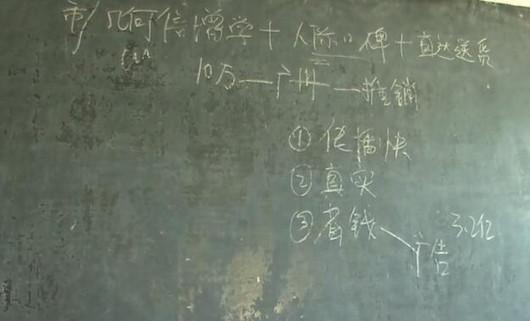 几何倍增学+人际口碑+直达送系
10万—广州—推銷
①传播快
②真实
③省钱
3.2亿
广告